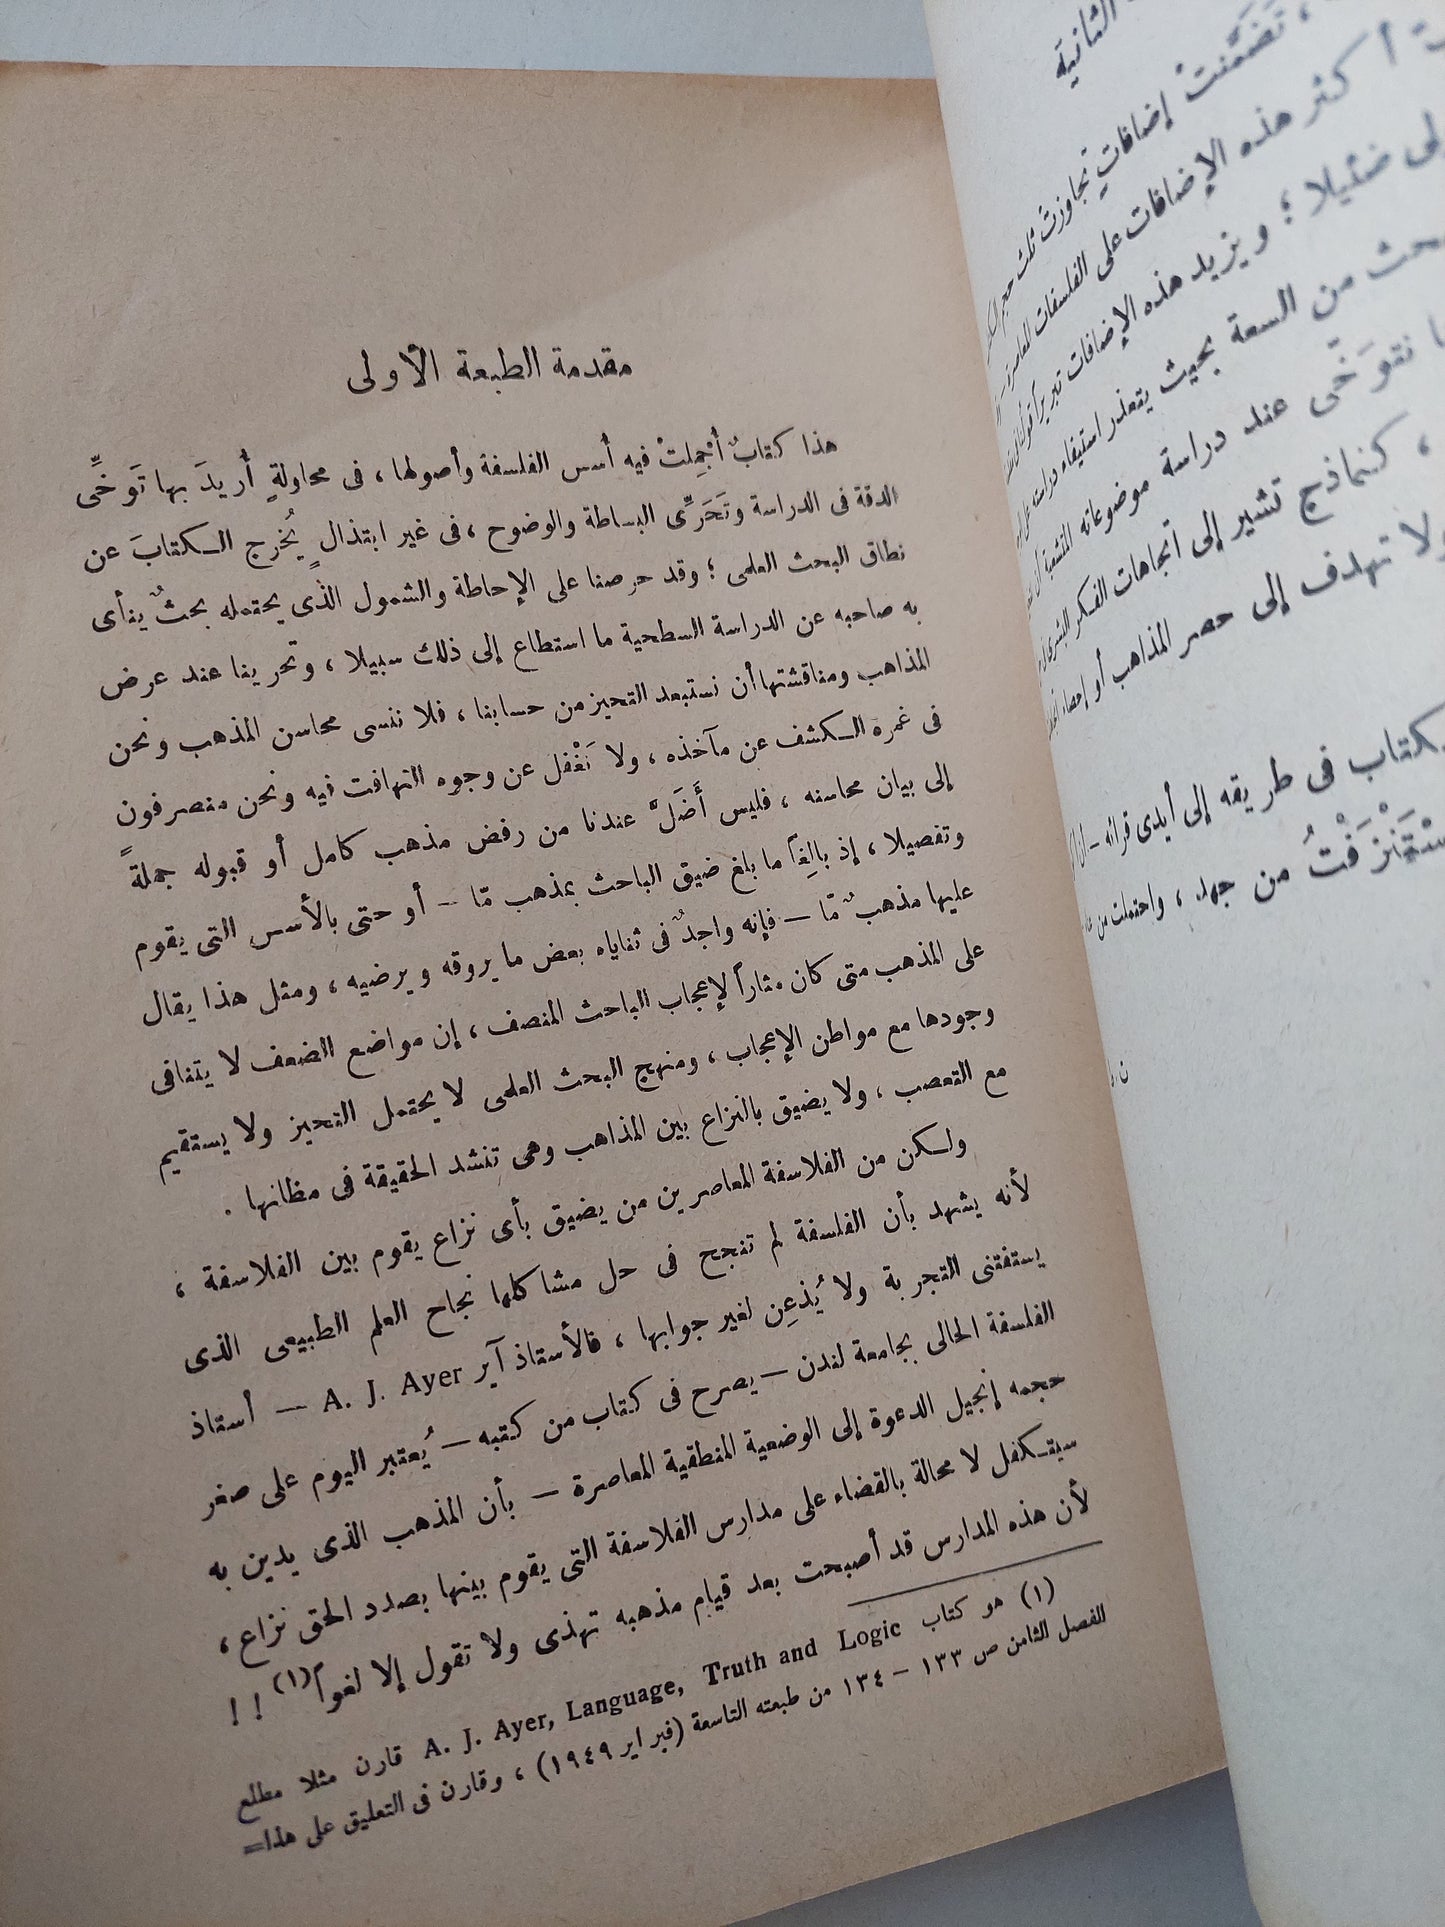 مقدمة الطبعة الأولى
هذا كتابٌ أُجْمِلتْ فيه أسس الفلسفة وأصولها ، فى محاولةٍ أُريدَ بها تَوَخِّى
الدقة فى الدراسة وتَحَرِّى البساطة والوضوح ، فى غير ابتذالٍ يُخرج الكتابَ عن
نطاق البحث العلمى ؛ وقد حرصنا على الإحاطة والشمول الذى يحتمله بحثٌ ينأى
به صاحبه عن الدراسة السطحية ما استطاع إلى ذلك سبيلا ، وتحرينا عند عرض
المذاهب ومناقشتها أن نستبعد التحيز من حسابنا ، فلا ننسى محاسن المذهب ونحن
فى غمرة الكشف عن مآخذه ، ولا نَغْفل عن وجوه التهافت فيه ونحن منصرفون
إلى بيان محاسنه ، فليس أَضَلَّ عندنا من رفض مذهب كامل أو قبوله جملةً
وتفصيلا ، إذ بالِغاً ما بلغ ضيق الباحث بمذهب مّا – أو حتى بالأسس التى يقوم
عليها مذهبٌ مّا – فإنه واجدٌ فى ثناياه بعض ما يروقه ويرضيه ، ومثل هذا يقال
على المذهب متى كان مثاراً لإعجاب الباحث المنصف ، إن مواضع الضعف لا يتنافى
وجودها مع مواطن الإعجاب ، ومنهج البحث العلمى لا يحتمل التحيز ولا يستقيم
مع التعصب ، ولا يضيق بالنزاع بين المذاهب وهى تنشد الحقيقة فى مظانها .
ولكن من الفلاسفة المعاصرين من يضيق بأى نزاع يقوم بين الفلاسفة ،
لأنه يشهد بأن الفلسفة لم تنجح فى حل مشاكلها نجاح العلم الطبيعى الذى
يستفتنى التجربة ولا يُذعِن لغير جوابها ، فالأستاذ آير A. J. Ayer — أستاذ
الفلسفة الحالى بجامعة لندن – يصرح فى كتاب من كتبه – يُعتبر اليوم على صغر
حجمه إنجيل الدعوة إلى الوضعية المنطقية المعاصرة – بأن المذهب الذى يدين به
سيتكفل لا محالة بالقضاء على مدارس الفلاسفة التى يقوم بينها بصدد الحق نزاع ،
لأن هذه المدارس قد أصبحت بعد قيام مذهبه تهذى ولا تقول إلا لغواً (١) ! !
(١) هو كتاب A. J. Ayer, Language, Truth and Logic قارن مثلا مطلع
الفصل الثامن ص ١٣٣ – ١٣٤ من طبعته التاسعة (فبراير ١٩٤٩) ، وقارن فى التعليق على هذا=
الثانية
، تَضمَّنتْ إضافاتٍ تجاوزتْ ثلث حجم
أكثر هذه الإضافات على الفلسفات المعاصرة
ضئيلا ؛ ويزيد هذه الإضافات تبريراً
من السعة بحيث يتعذر استيفاء دراسته
نتوَخَّى عند دراسة موضوعاته المتشعبة
، كنماذج تشير إلى اتجاهات الفكر البشرى
ولا تهدف إلى حصر المذاهب أو إحصاء
فى طريقه إلى أيدى قرائه –
من جهد ، واحتملت من